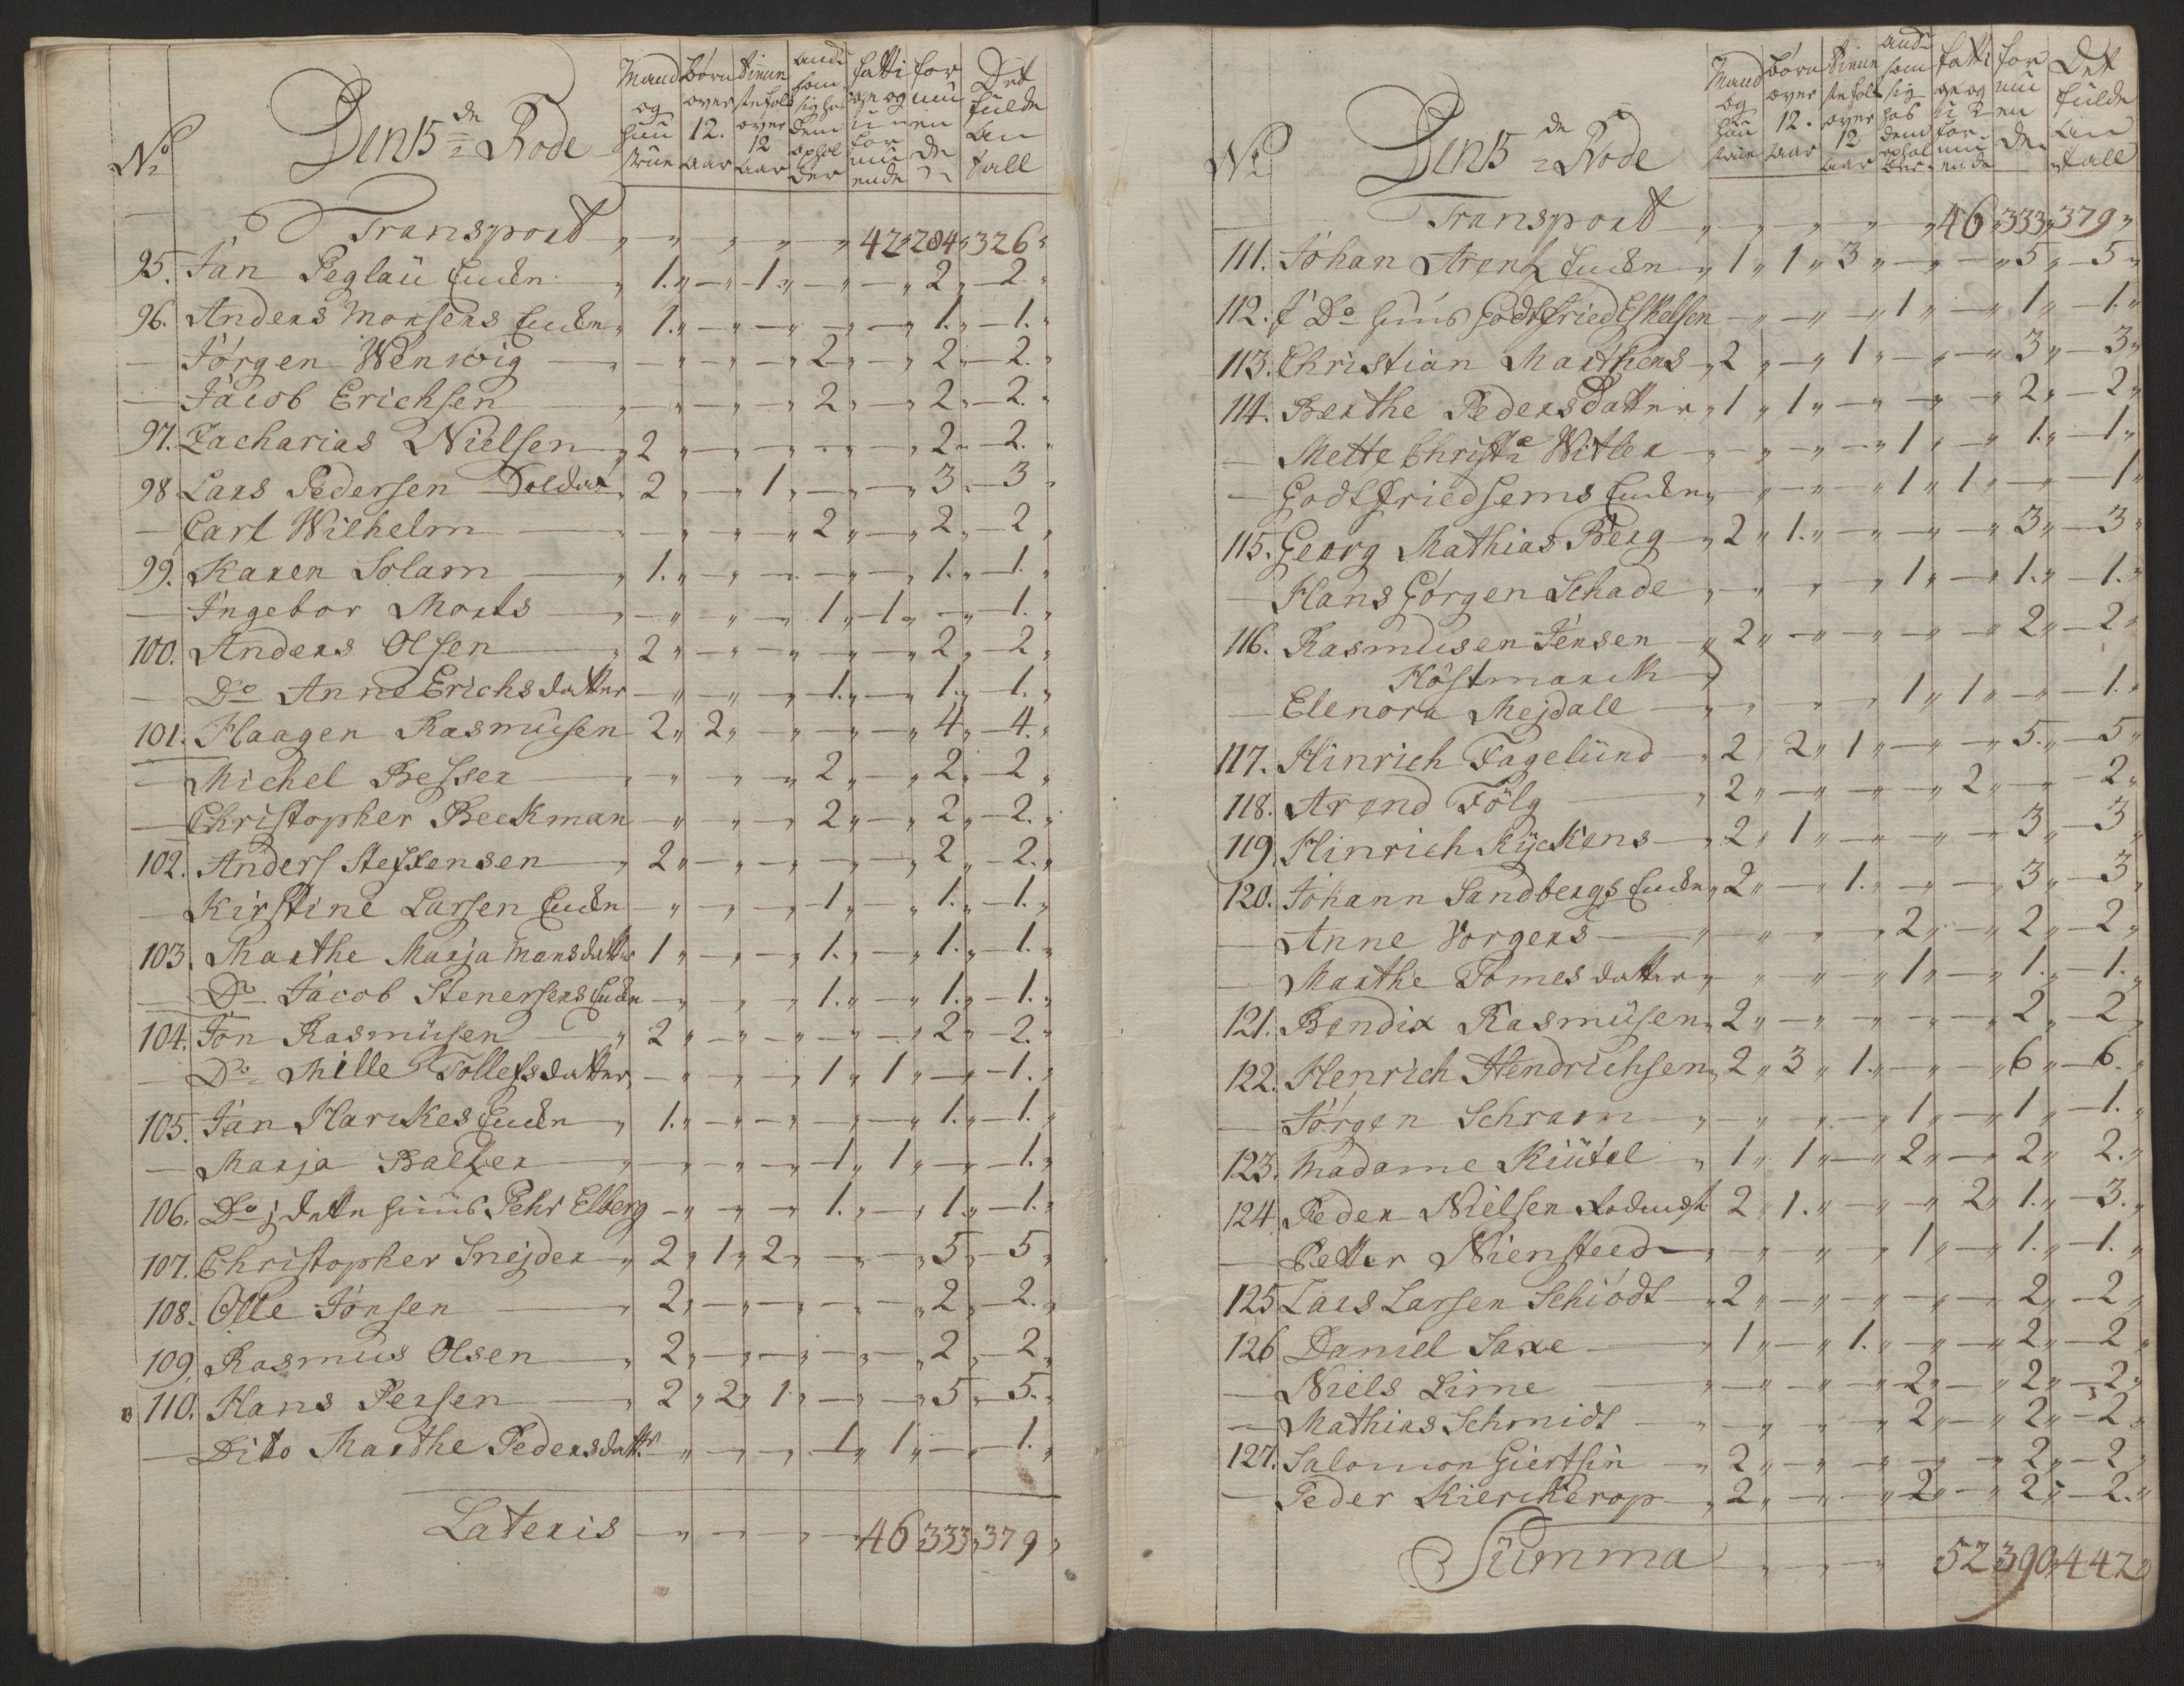 No Den 15de Rode Mand og huustrue børn over 12. aar Tiennistefolk over 12 aar andre som sig hos dem opholder fattige og uformuende formuende Det fulde antall
Transport " " " " " 42 " 284 " 326 "
95. Jan Peglau Enken " 1. " — " 1 " — " — " 2 " — 2 "
96. Anders Monsens Enken " 1. " — " — " — " — " 1. " — 1. "
— Jörgen Wenwig — " — " — " — 2 " — " 2 " — 2. "
— Jacob Erichsen — " — " — " — 2 " — " 2 " — 2. "
97. Zacharias Nielsen " 2 " — " — " — " — " 2 " — 2. "
98 Lars Pedersen Soldat " 2 " — " 1 " — " — " 3 " — 3 "
— Carl Wilhelm — " — " — " — 2 " — " 2 " — 2 "
99. Karen Solam — " 1. " — " — " — " — " 1. " — 1. "
— Ingebor Morts — " — " — " — 1 " 1 " — " — 1. "
100. Anders Olsen — " 2 " — " — " — " — " 2 " — 2 "
— Do Anne Erichsdatter — " — " — " 1. " — " 1. " — 1. "
101. Haagen Rasmusen 2 " 2 " — " — " — " 4 " — 4. "
— Michel Besser — " — " — " — 2 " — " 2 " — 2 "
— Christopher Beckman — " — " — " 2 " — " 2 " — 2. "
102. Anders Steffensen — " 2 " — " — " — " — " 2 " — 2. "
— Kirstine Larsen Enken — " — " — " 1 " — " 1. " — 1. "
103. Marthe Marja Mansdatter 1 " — " — " 1. " — " 1. " — 1. "
— Do Jacob Stenersens Enken — " — " — " 1. " — " 1. " — 1. "
104. Jon Rasmusen — " 2 " — " — " — " — " 2 " — 2. "
— Do Mille Tollefsdatter — " — " — " 1 " 1 " — " — 1. "
105. Jan Harckes Enken " 1. " — " — " — " — " 1. " — 1. "
— Marja Baltzer — " — " — " — 1 " 1 " — " — 1. "
106. Do i dette huus Pehr Elberg — " — " — " 1. " — " 1. " — 1. "
107. Christopher Snejder " 2 " 1 " 2 " — " — " 5 " — 5 "
108. Olle Jonsen — " 2 " — " — " — " — " 2 " — 2. "
109. Rasmus Olsen — " 2 " — " — " — " — " 2 " — 2 "
110. Hans Persen — " 2 " 2 " 1 " — " — " 5 " — 5. "
— Dito Marthe Pedersdattr — " — " — " 1 " 1 " — " — 1. "
Lateris — " — " — " — 46 " 333 " 379 "
No Den 15de Rode Mand og huustrue børn over 12. aar Tiennistefolk over 12 aar andre som sig hos dem opholder fattige og uformuende formuende Det fulde antall
Transport " " " " " 46 " 333 " 379 "
111. Johan Arentz Enken " 1 " 1 " 3 " — " — " 5 " — 5 "
112. I Do huus Godtfried Eskelsen — " — " — " 1 " — " 1 " — 1. "
113. Christian Marthens " 2 " — " 1 " — " — " 3 " — 3 "
114. Berthe Pedersdatter " 1 " 1 " — " — " — " 2 " — 2 "
— Mette Christe Witler — " — " — " — 1 " — " 1. " — 1 "
— Godtfried Sems Enken " — " — " — " 1 " 1 " — " — 1 "
115. Georg Mathias Berg — " 2 " 1. " — " — " — " 3 " — 3 "
— Hans Görgen Schade " — " — " — " 1 " — " 1. " — 1. "
116. Rasmusen Jensen — " 2 " — " — " — " — " 2 " — 2 "
Höstmarck
— Elenora Mejdall — " — " — " — 1 " 1 " — " — 1. "
117. Hinrich Fagelund — " 2 " 2 " 1 " — " — " 5. " — 5 "
118. Arend Fölg — " 2 " — " — " — " 2 " — " — 2 "
119. Hinrich Ryckens — " 2 " 1 " — " — " — " 3 " — 3 "
120. Johann Sandbergs Enken " 2 " — " 1. " — " — " 3 " — 3 "
— Anne Vorgers — " — " — " — 2 " — " 2 " — 2 "
— Marthe Tomesdatter " — " — " — " 1 " — " 1. " — 1. "
121. Bendix Rasmusen " 2 " — " — " — " — " 2 " — 2 "
122. Henrich Hendrichsen " 2 " 3 " 1. " — " — " 6 " — 6. "
— Jörgen Schram " — " — " — " 1 " — " 1 " — 1. "
123. Madame Kiütel " 1 " 1 " — 2 " — " 2 " 2. "
124 Peder Nielsen Rodemstr 2 " 1. " — " — " 2 " 1. " — 3. "
— Petter Niensteed — " — " — " — 1 " — " 1. " — 1. "
125 Lars Larsen Schiödt " 2 " — " — " — " — " 2 " — 2 "
126 Daniel Saxe — " 1 " — " 1. " — " — " 2 " — 2 "
— Niels Lime — " — " — " — 2 " — " 2 " — 2 "
— Mathias Schmidt — " — " — " — 2 " — " 2 " — 2 "
127. Salomon Giertsin — " 2 " — " — " — " — " 2 " — 2 "
— Peder Kierckerop " 2 " — " — " 2 " — " 2 " — 2. "
Summa — " — " — " 52 390 " 442